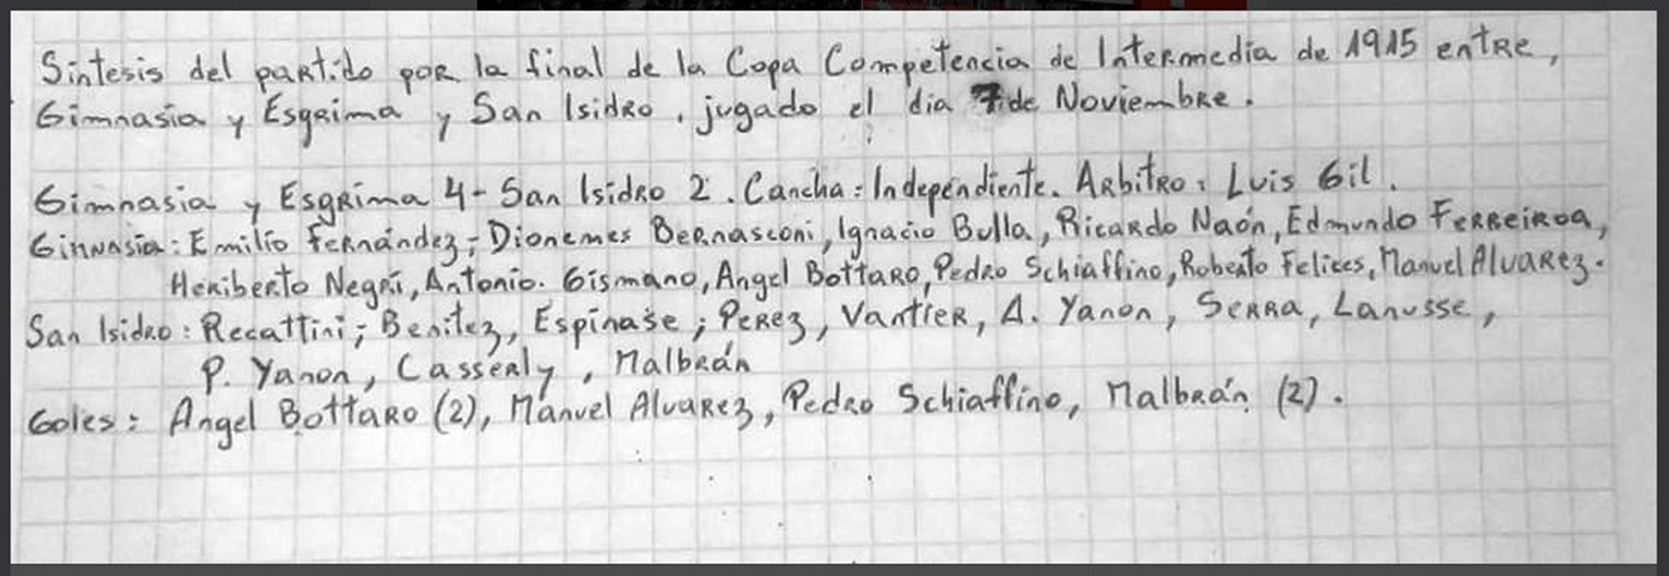 Síntesis del partido por la final de la Copa Competencia de Intermedia de 1915 entre,
Gimnasia y Esgrima y San Isidro, jugado el dia 7 de Noviembre.
Gimnasia y Esgrima 4- San Isidro 2. Cancha: Independiente. Arbitro: Luis Gil.
Gimnasia: Emilio Fernández; Dionemes Bernasconi, Ignacio Bulla, Ricardo Naón, Edmundo Ferreiroa,
Heriberto Negri, Antonio. Gismano, Angel Bottaro, Pedro Schiaffino, Roberto Felices, Manuel Alvarez.
San Isidro: Recattini; Benítez, Espinase; Perez, Vantier, A. Yanon, Serra, Lanusse,
P. Yanon, Casserly, Malbrán
Goles: Angel Bottaro (2), Manuel Alvarez, Pedro Schiaffino, Malbrán (2).